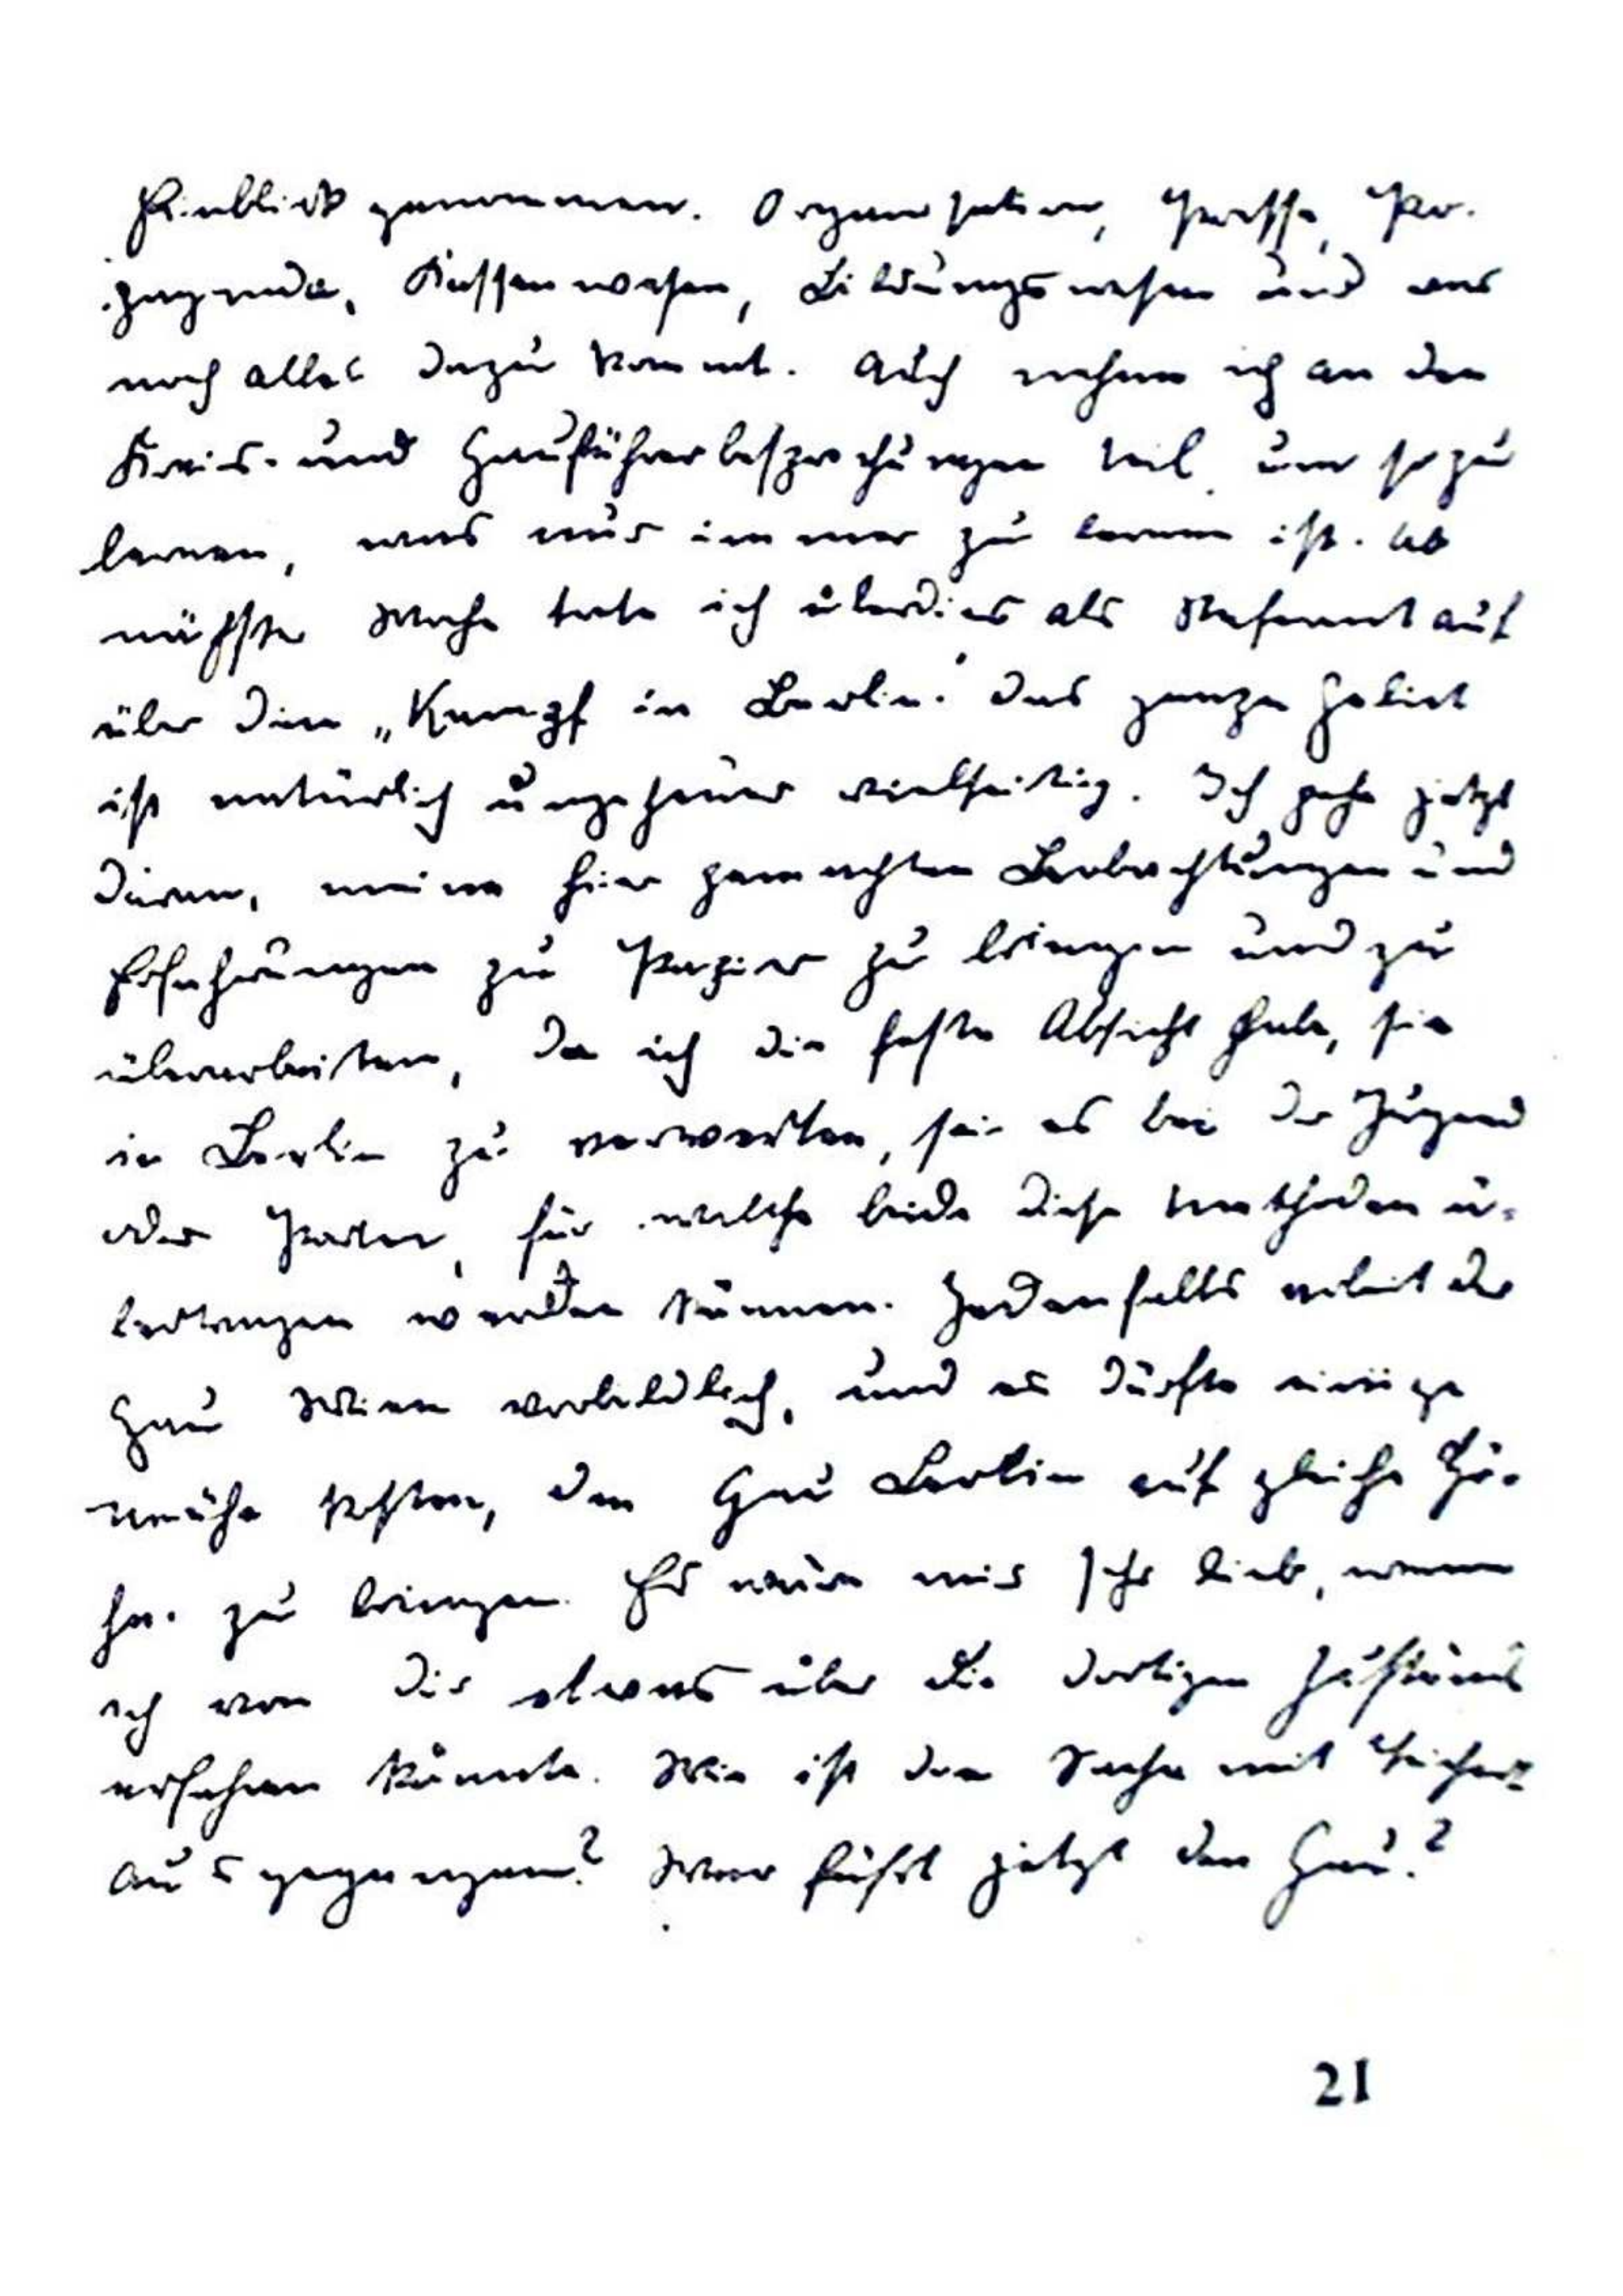 Einblick genommen. Organisation, Presse, Pro-
paganda, Kassenwesen, Bildungswesen und was
noch alles dazu kommt. Auch nehme ich an den
Kreis- und Gauführerbesprechungen teil, um so zu
lernen, was nur immer zu lernen ist. Ab
nächste Woche trete ich überdies als Referent auf
über den „Kampf in Berlin." Das ganze Gebiet
ist natürlich ungeheuer vielseitig. Ich gehe jetzt
daran, meine hier gemachten Beobachtungen und
Erfahrungen zu Papier zu bringen und zu
überarbeiten, da ich die feste Absicht habe, sie
in Berlin zu verwerten, sei es bei der Jugend
oder Partei, für welche beide diese Methoden ü-
bertragen werden können. Jedenfalls arbeitet der
Gau Wien vorbildlich, und es dürfte einige
Mühe kosten, den Gau Berlin auf gleiche Hö-
he zu bringen. Es wäre mir sehr lieb, wenn
ich von Dir etwas über die dortigen Zustände
erfahren könnte. Wie ist die Sache mit
ausgegangen? Wer führt jetzt den Gau?
21